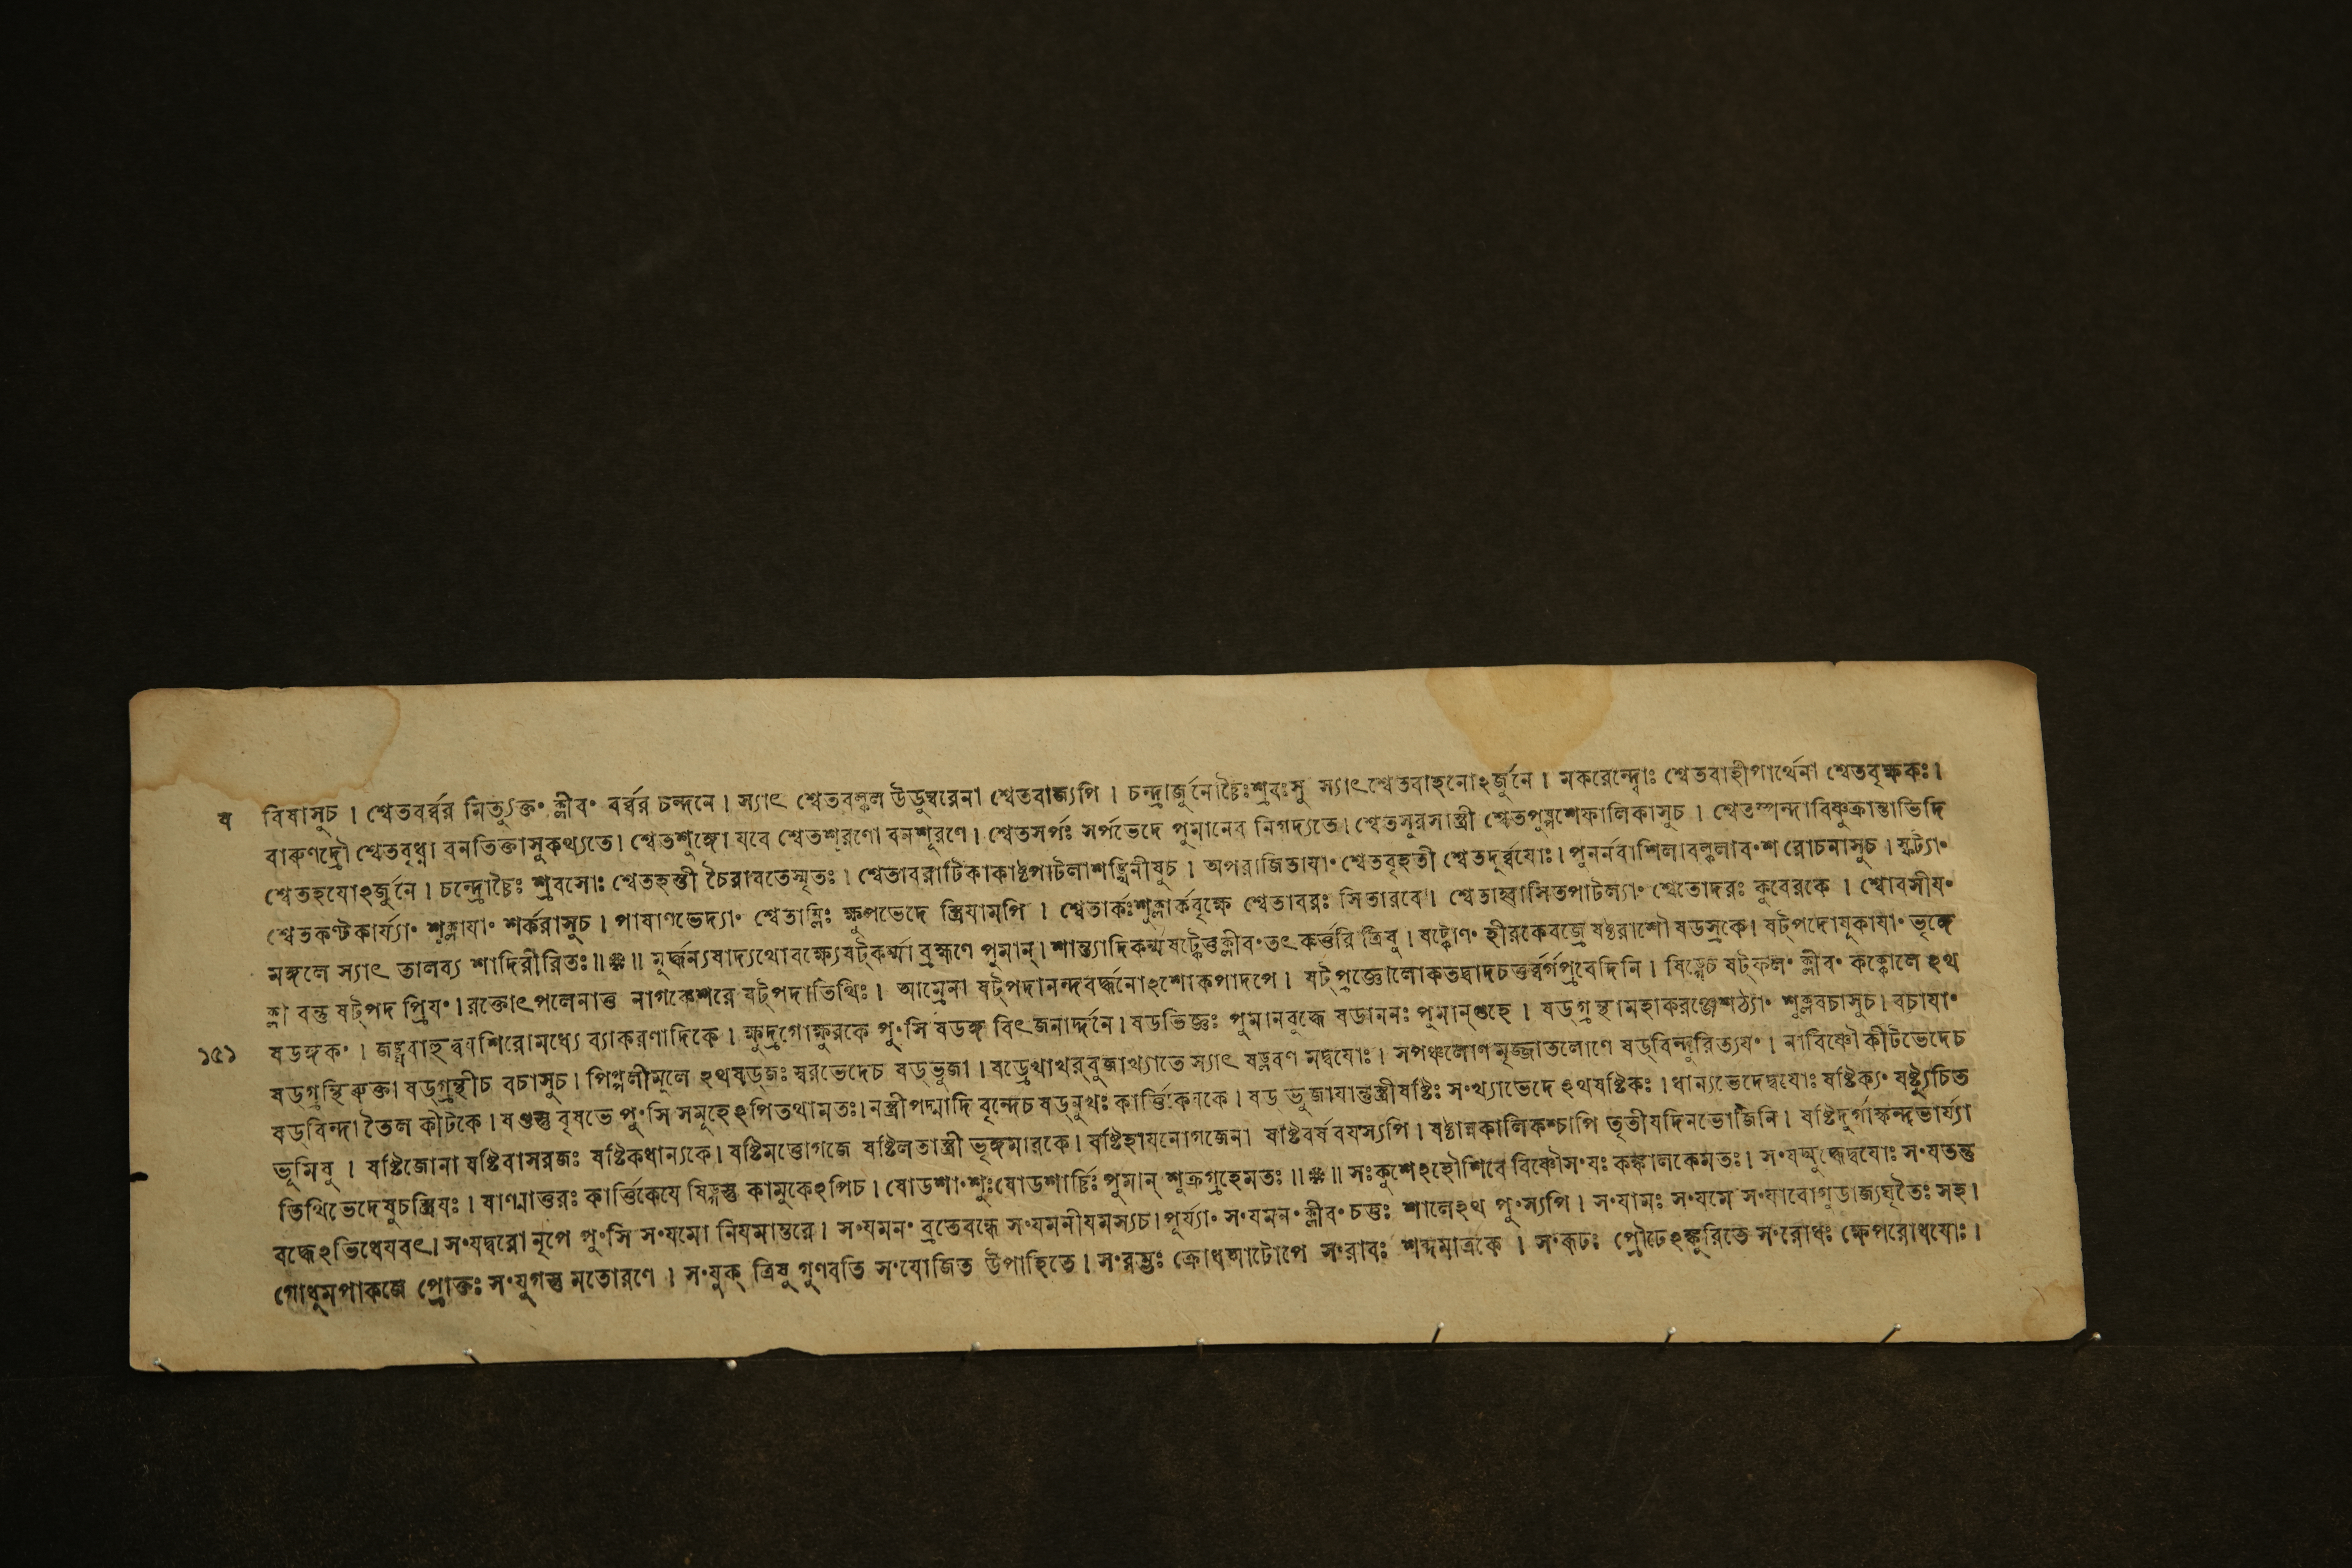 ব বিষাসুচ । শ্বেতবর্ব্বর মিত্যুক্ত॰ ক্লীব॰ বর্ব্বর চন্দনে । স্যাৎ শ্বেতবল্কল উডুম্বরেনা শ্বেতবাজ্যপি । চন্দ্রার্জুনোচ্চৈঃশ্রবঃসু স্যাৎশ্বেতবাহনোঽর্জুনে । মকরেন্দ্বোঃ শ্বেতবাহীপার্থেনা শ্বেতবৃক্ষকঃ।
বারুণদ্রৌ শ্বেতবৃধ্না বনতিক্তাসুকথ্যতে। শ্বেতশুঙ্গো যবে শ্বেতশূরণো বনশূরণে। শ্বেতসর্পঃ সর্পভেদে পুমানেব নিগদ্যতে। শ্বেতসুরসাস্ত্রী শ্বেতপুষ্পশেফালিকাসুচ । শ্বেতস্পন্দাবিষ্ণুক্রান্তাভিদি
শ্বেতহযোঽর্জুনে । চন্দ্রোচ্চৈঃ শ্রবসোঃ শ্বেতহস্তী চৈরাবতেস্মৃতঃ । শ্বেতাবরাটিকাকাষ্ঠপাটলাশঙ্খিনীষুচ । অপরাজিতাযা॰ শ্বেতবৃহতী শ্বেতদূর্ব্বযোঃ। পুনর্নবাশিলাবল্কলাব॰শ রোচনাসুচ । স্ফট্যা॰
শ্বেতকণ্টকার্য্যা॰ শুক্লাযা॰ শর্করাসুচ । পাষাণভেদ্যা॰ শ্বেতাম্লিঃ ক্ষুপভেদে স্ত্রিযামপি । শ্বেতার্কঃশুক্লার্কবৃক্ষে শ্বেতাবরঃ সিতারবে । শ্বেতাহ্বাসিতপাটল্যা॰ শ্বেতোদরঃ কুবেরকে । শ্বোবসীয॰
মঙ্গলে স্যাৎ তালব্য শাদিরীরিতঃ॥ ॥ মূর্দ্ধন্যষাদ্যথোবক্ষ্যেষট্‌কর্ম্মা ব্রহ্মণে পুমান্। শান্ত্যাদিকর্ম্মষট্কেত্তক্লীব॰তৎ কর্ত্তরি ত্রিষু । ষট্কোণ॰ হীরকেবজ্রে ষষ্ঠরাশৌ ষডস্রকে। ষট্‌পদোযূকাযা॰ ভৃঙ্গে
ক্লা বন্তু ষট্‌পদ প্রিয॰ । রক্তোৎপলেনাত্ত নাগকেশরে ষট্‌পদাতিথিঃ। আম্রেনা ষট্‌পদানন্দবর্দ্ধনোঽশোকপাদপে । ষট্‌প্রজ্ঞোলোকতত্বাদচতুর্ব্বর্গপ্রবেদিনি । ষিড়্গেচ ষট্‌ফল॰ ক্লীব॰ কক্কোলে ঽথ
১৫১ ষডঙ্গক॰ । জঙ্ঘাবাহু শিরোমধ্যে ব্যাকরণাদিকে । ক্ষুদ্রগোক্ষুরকে পু॰সি ষডঙ্গ বিৎজনার্দ্দনে। ষডভিজ্ঞঃ পুমানবুদ্ধে ষডাননঃ পুমান্‌গুহে । ষড্‌গ্রন্থামহাকরঞ্জেশঠ্যা॰ শুক্লবচাসুচ। বচাযা॰
ষড্‌গ্রন্থি ষড্‌গ্রন্থীচ বচাসুচ। পিপ্পলীমূলে ঽথষড্‌জঃ স্বরভেদেচ ষড্‌ভুজা । স্যাৎ মদ্বযোঃ । সপঞ্চলোণ ষড্‌বিন্দুরিত্যয॰ । নাবিষ্ণৌ কীটভেদেচ
ষড্‌বিন্দা তৈল কীটকে । ষণ্ডস্তু বৃষভে পু॰সি সমূহেঽপিতথামতঃ। নস্ত্রীপদ্মাদি বৃন্দেচ ষড্‌মুখঃ কার্ত্তিকেযকে । ষড ভুজাযান্তুস্ত্রীষষ্টিঃ স॰খ্যাভেদে ঽথষষ্টিকঃ । ধান্যভেদেদ্বযোঃ ষষ্টিক্য॰ ষষ্ট্যুচিত
ভূমিষু । ষষ্টিজোনা ষষ্টিবাসরজঃ ষষ্টিকধান্যকে। ষষ্টিমত্তোগজে ষষ্টিলতাস্ত্রী ভৃঙ্গমারকে। ষষ্টিহাযনোগজেনা ষষ্টিবর্ষ বযস্যপি । ষষ্ঠান্নকালিকশ্চাপি তৃতীযদিনভোজিনি । ষষ্টিদুর্গাস্কন্দভার্য্যা
তিথিভেদেষুচস্ত্রিযঃ । ষাণ্মাত্তরঃ কার্ত্তিকেযে ষিড়্গস্তু কামুকেঽপিচ । ষোডশা॰শুঃষোডশার্চ্চিঃ পুমান্ শুক্রগ্রহেমতঃ ॥ ॥ সঃকুশেঽহৌশিবে বিষ্ণৌস॰যঃ কঙ্কালকেমতঃ। স॰যদ্যুদ্ধেদ্বযোঃ স॰যতন্তু
বদ্ধেঽভিধেযবৎ। স॰যদ্বরো নৃপে পু॰সি স॰যমো নিযমান্তরে । স॰যমন॰ ব্রতেবন্ধে স॰যমনীযমস্যচ। পুর্য্যা॰ স॰যমন॰ ক্লীব॰ চতুঃ শালেঽথ পু॰স্যপি । স॰যামঃ স॰যমে স॰যাবোগুডাজ্যঘৃতৈঃ সহ।
গোধুমপাকজে প্রোক্তঃ স॰যুগন্তু মতোরণে । স॰যুক্ ত্রিষু গুণবতি স॰যোজিত উপাহিতে । স॰রম্ভঃ ক্রোধআটোপে স॰রাবঃ শব্দমাত্রকে । স॰রূঢঃ প্রৌঢেঽঙ্কুরিতে স॰রোধঃ ক্ষেপরোধযোঃ।